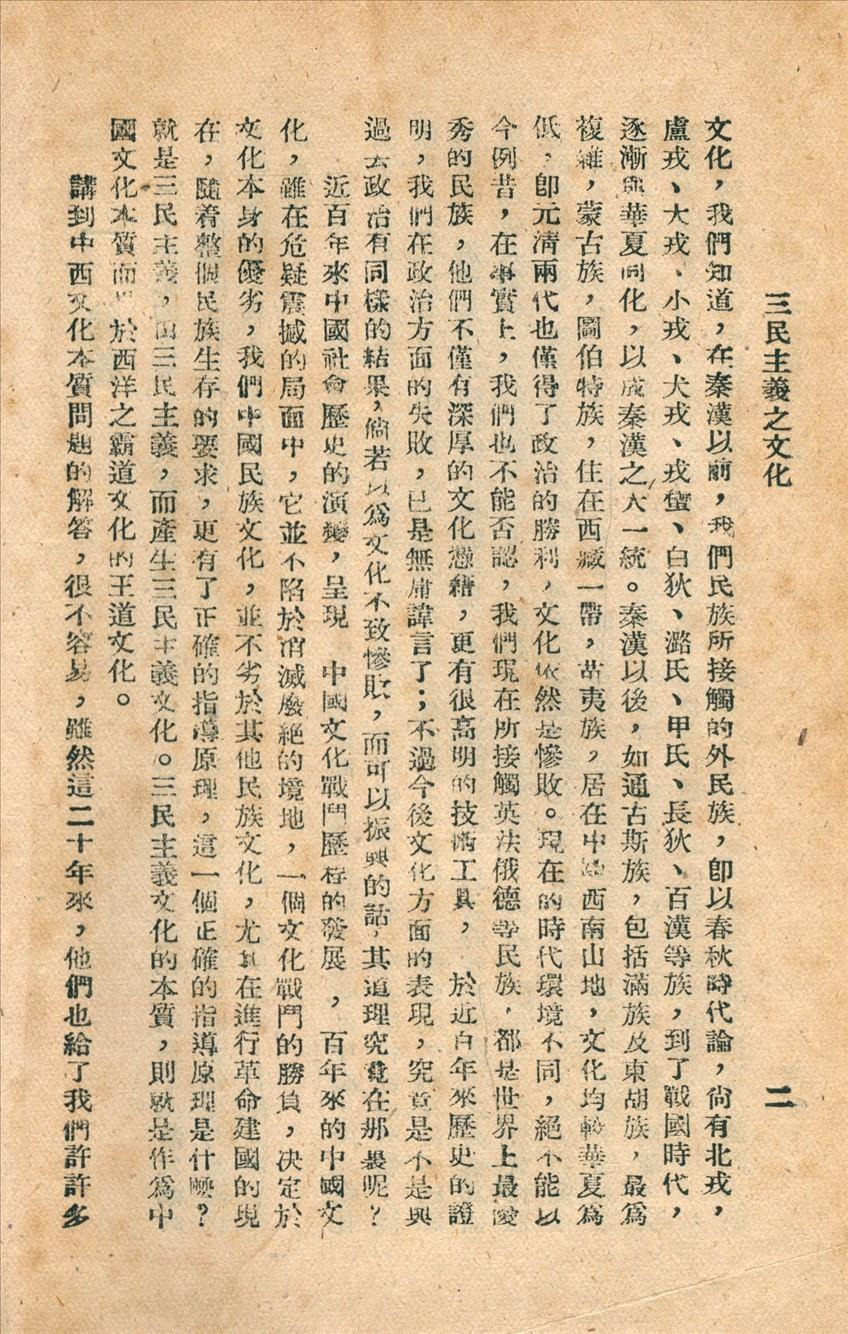 三民主義之文化
二
文化，我們知道，在秦漢以前，我們民族所接觸的外民族，卽以春秋時代論，尙有北戎，
盧戎、大戎、小戎、犬戎、戎蠻、白狄、潞氏、甲氏、長狄、百濮等族，到了戰國時代，
逐漸與華夏同化，以成秦漢之大一統。秦漢以後，如通古斯族，包括滿族及東胡族，最爲
複雜，蒙古族，圖伯特族，住在西藏一帶，苗夷族，居在中國西南山地，文化均較華夏爲
低，卽元清兩代也僅得了政治的勝利，文化依然是慘敗。現在的時代環境不同，絕不能以
今例昔，在事實上，我們也不能否認，我們現在所接觸英法俄德等民族，都是世界上最優
秀的民族，他們不僅有深厚的文化憑藉，更有很高明的技術工具，於近百年來歷史的證
明，我們在政治方面的失敗，已是無庸諱言了；不過今後文化方面的表現，究竟是不是與
過去政治有同樣的結果，倘若以爲文化不致慘敗，而可以振興的話，其道理究竟在那裏呢？
近百年來中國社會歷史的演變，呈現　中國文化戰鬥歷程的發展　，百年來的中國文
化，雖在危疑震撼的局面中，它並不陷於消滅廢絕的境地，一個文化戰鬥的勝負，决定於
文化本身的優劣，我們中國民族文化，並不劣於其他民族文化，尤其在進行革命建國的現
在，隨着整個民族生存的要求，更有了正確的指導原理，這一個正確的指導原理是什麽？
就是三民主義，由三民主義，而產生三民主義文化。三民主義文化的本質，則就是作爲中
國文化本質而　於西洋之霸道文化的王道文化。
講到中西文化本質問題的解答，很不容易，雖然這二十年來，他們也給了我們許許多